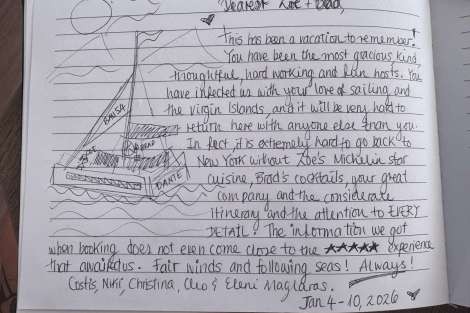 Dearest Zoe + Brad,
This has been a vacation to remember!
You have been the most gracious, kind,
thoughtful, hard working and fun hosts. You
have infected us with your love of sailing and
the Virgin Islands, and it will be very hard to
return here with anyone else than you.
In fact, it is extremely hard to go back to
New York without Zoe's Michelin star
cuisine, Brad's cocktails, your great
company and the considerate
itinerary and the attention to EVERY
DETAIL! The information we got
when booking does not even come close to the ★★★★★ experience
that awaited us. Fair winds and following seas! Always!
Costis, Niki, Christina, Cleo & Eleni Maglaras.
Jan 4-10, 2026
DANTE